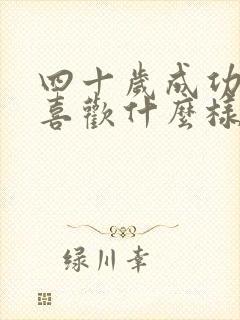 四十歲成功
喜歡什麼樣
绿川幸